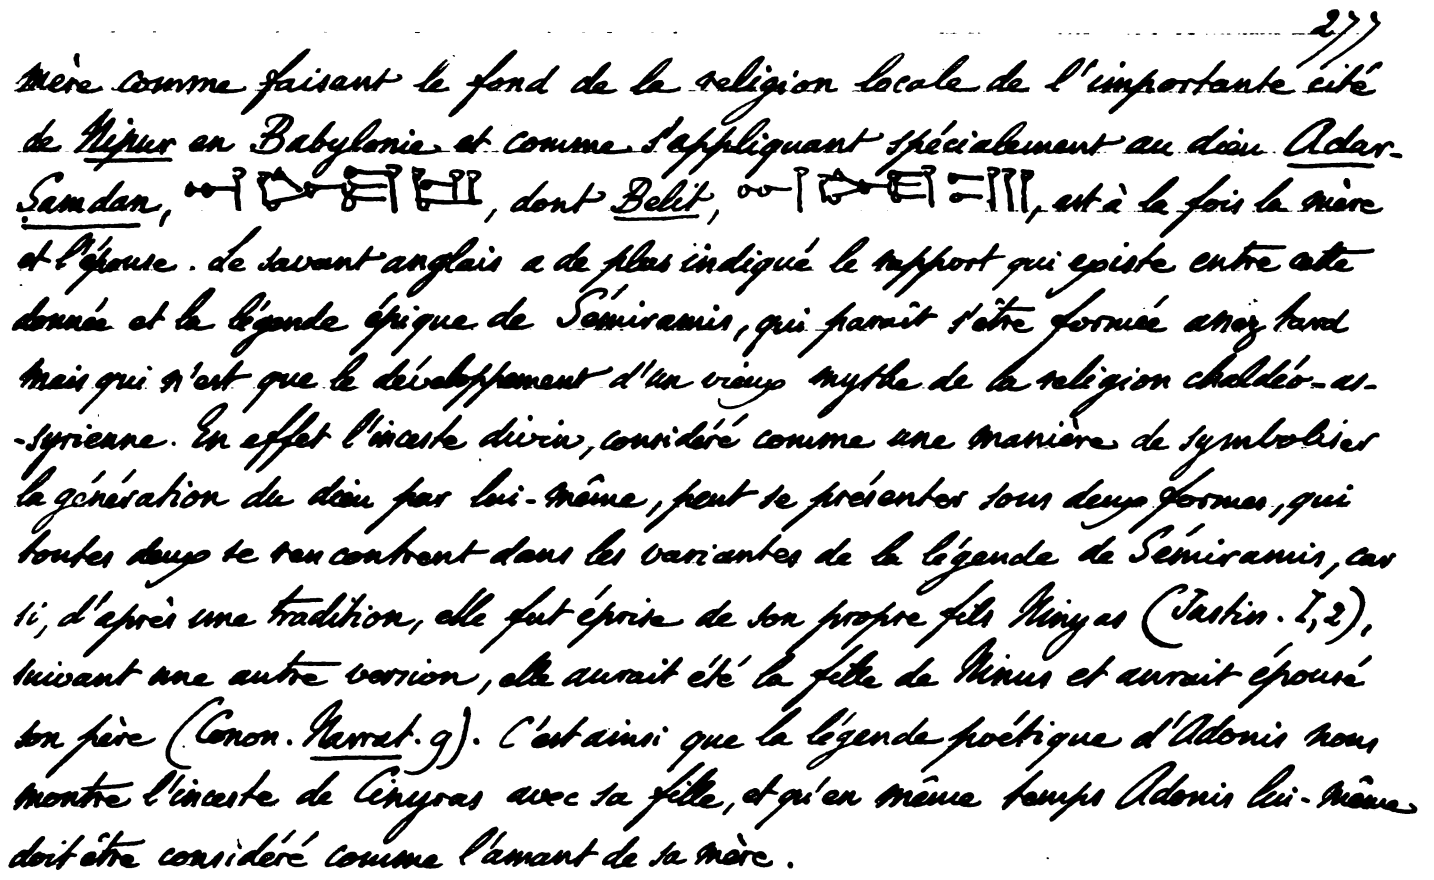 277
mère comme faisant le fond de la religion locale de l'importante cité
de Nipur en Babylonie et comme s'appliquant spécialement au dieu Adar-
Samdan, , dont Belit, , est à la fois la mère
et l'épouse. Le savant anglais a de plus indiqué le rapport qui existe entre cette
donnée et la légende épique de Sémiramis, qui paraît s'être formée assez tard
mais qui n'est que le développement d'un vieux mythe de la religion chaldéo-as-
-syrienne. En effet l'inceste divin, considéré comme une manière de symboliser
la génération du dieu par lui-même, peut se présenter sous deux formes, qui
toutes deux se rencontrent dans les variantes de la légende de Sémiramis, car
si, d'après une tradition, elle fut éprise de son propre fils Ninyas (Justin. I, 2),
suivant une autre version, elle aurait été la fille de Ninus et aurait épousé
son père (Conon. Narrat. 9). C'est ainsi que la légende poétique d'Adonis nous
montre l'inceste de Cinyras avec sa fille, et qu'en même temps Adonis lui-même
doit être considéré comme l'amant de sa mère.